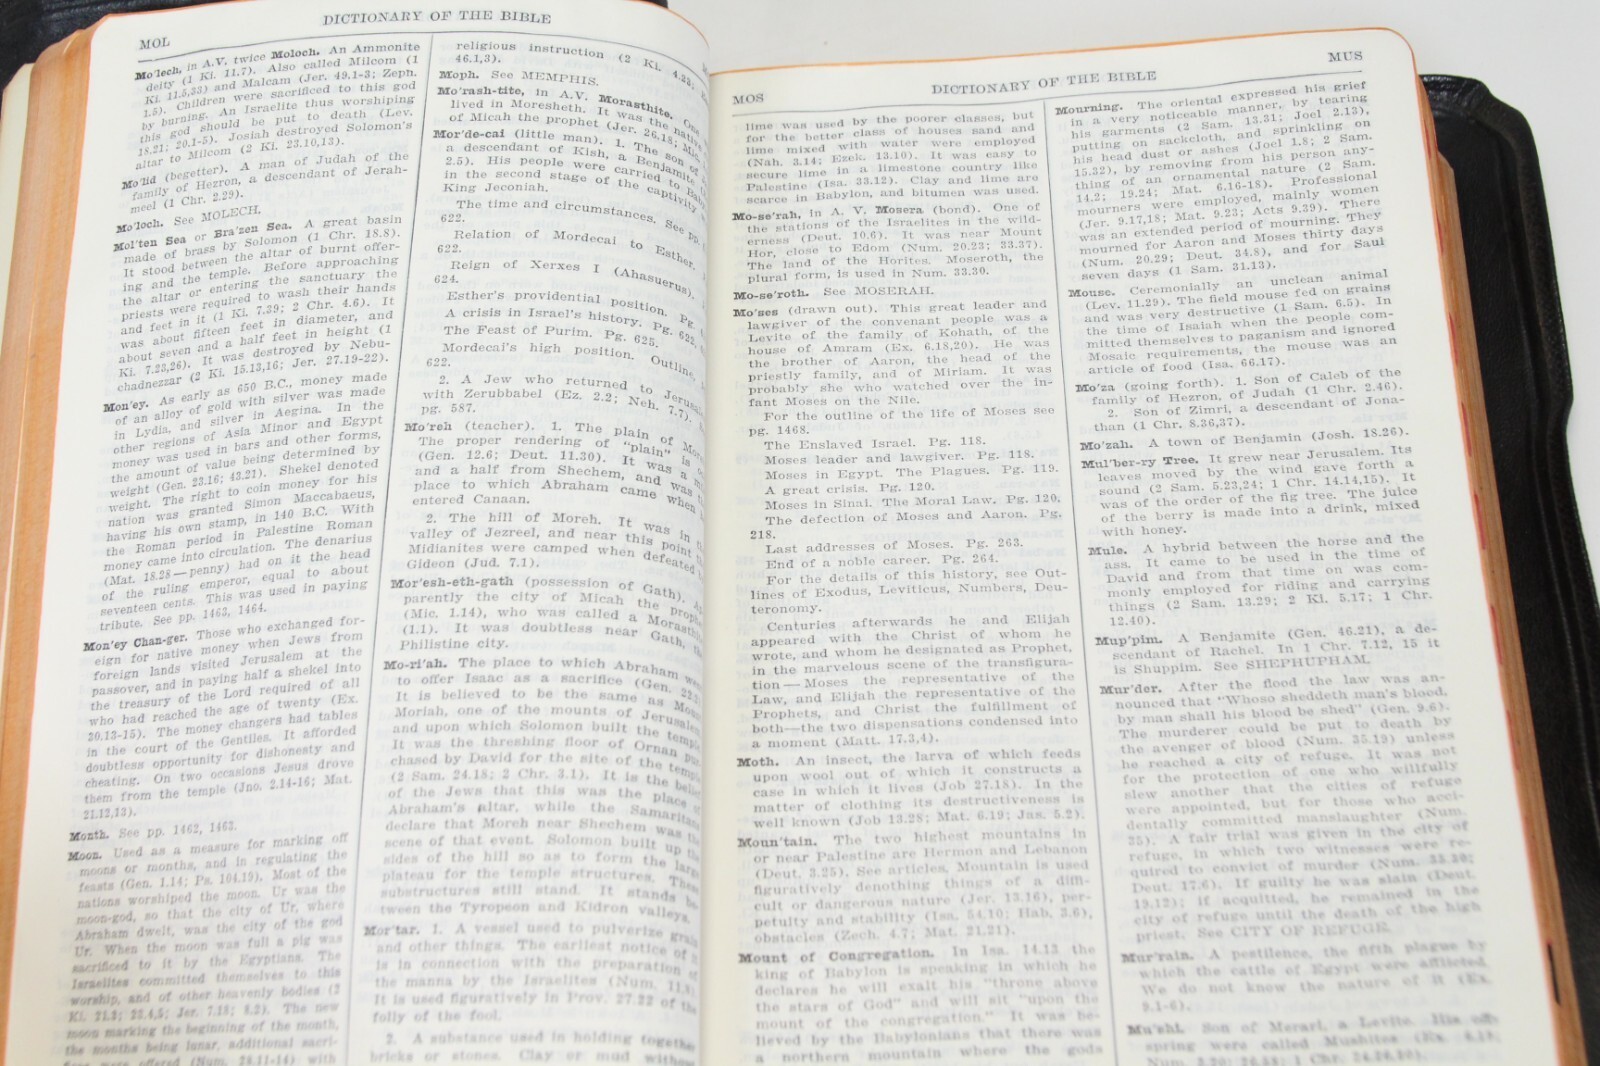 DICTIONARY OF THE BIBLE
MOL
Mo'lech, in A.V. twice Moloch. An Ammonite
deity (1 Ki. 11.7). Also called Milcom (1
Ki. 11.5,33) and Malcam (Jer. 49.1-3; Zeph.
1.5). Children were sacrificed to this god
by burning. An Israelite thus worshiping
this god should be put to death (Lev.
18.21; 20.1-5). Josiah destroyed Solomon's
altar to Milcom (2 Ki. 23.10,13).
Mo'lid (begetter). A man of Judah of the
family of Hezron, a descendant of Jerah-
meel (1 Chr. 2.29).
Mo'loch. See MOLECH.
Mol'ten Sea or Bra'zen Sea. A great basin
made of brass by Solomon (1 Chr. 18.8).
It stood between the altar of burnt offer-
ing and the temple. Before approaching
the altar or entering the sanctuary the
priests were required to wash their hands
and feet in it (1 Ki. 7.39; 2 Chr. 4.6). It
was about fifteen feet in diameter, and
about seven and a half feet in height (1
Ki. 7.23,26). It was destroyed by Nebu-
chadnezzar (2 Ki. 15.13,16; Jer. 27.19-22).
Mon'ey. As early as 650 B.C., money made
of an alloy of gold with silver was made
in Lydia, and silver in Aegina. In the
other regions of Asia Minor and Egypt
money was used in bars and other forms,
the amount of value being determined by
weight (Gen. 23.16; 43.21). Shekel denoted
weight. The right to coin money for his
nation was granted Simon Maccabaeus,
having his own stamp, in 140 B.C. With
the Roman period in Palestine Roman
money came into circulation. The denarius
(Mat. 18.28—penny) had on it the head
of the ruling emperor, equal to about
seventeen cents. This was used in paying
tribute. See pp. 1463, 1464.
Mon'ey Chan-ger. Those who exchanged for-
eign for native money when Jews from
foreign lands visited Jerusalem at the
passover, and in paying half a shekel into
the treasury of the Lord required of all
who had reached the age of twenty (Ex.
20.13-15). The money changers had tables
in the court of the Gentiles. It afforded
doubtless opportunity for dishonesty and
cheating. On two occasions Jesus drove
them from the temple (Jno. 2.14-16; Mat.
21.12,13).
Month. See pp. 1462, 1463.
Moon. Used as a measure for marking off
moons or months, and in regulating the
feasts (Gen. 1.14; Ps. 104.19). Most of the
nations worshiped the moon. Ur was the
moon-god, so that the city of Ur, where
Abraham dwelt, was the city of the god
Ur. When the moon was full a pig was
sacrificed to it by the Egyptians. The
Israelites committed themselves to this
worship, and of other heavenly bodies (2
Ki. 21.3; 23.4,5; Jer. 7.18; 8.2). The new
moon marking the beginning of the month,
the months being lunar, additional sacri-
fices were offered (Num. 28.11-14) with
religious instruction (2 Ki. 4.23;
46.1,3).
Moph. See MEMPHIS.
Mo'rash-tite, in A.V. Morasthite. One
lived in Moresheth. It was the native
of Micah the prophet (Jer. 26.18; Mic.
Mor'de-cai (little man). 1. The son of
a descendant of Kish, a Benjamite
2.5). His people were carried to
in the second stage of the captivity
King Jeconiah.
The time and circumstances. See pp.
622.
Relation of Mordecai to Esther.
622.
Reign of Xerxes I (Ahasuerus).
624.
Esther's providential position. Pg.
A crisis in Israel's history. Pg. 622,
The Feast of Purim. Pg. 625.
Mordecai's high position. Outline,
622.
2. A Jew who returned to
with Zerubbabel (Ez. 2.2; Neh. 7.7).
pg. 587.
Mo'reh (teacher). 1. The plain of
The proper rendering of "plain" is
(Gen. 12.6; Deut. 11.30). It was a
and a half from Shechem, and was
place to which Abraham came when
entered Canaan.
2. The hill of Moreh. It was in
valley of Jezreel, and near this point
Midianites were camped when defeated
Gideon (Jud. 7.1).
Mor'esh-eth-gath (possession of Gath).
parently the city of Micah the
(Mic. 1.14), who was called a
(1.1). It was doubtless near Gath,
Philistine city.
Mo-ri'ah. The place to which Abraham
to offer Isaac as a sacrifice (Gen. 22.2).
It is believed to be the same as
Moriah, one of the mounts of Jerusalem
and upon which Solomon built the
It was the threshing floor of Ornan
chased by David for the site of the
(2 Sam. 24.18; 2 Chr. 3.1). It is the belief
of the Jews that this was the place of
Abraham's altar, while the Samaritans
declare that Moreh near Shechem was the
scene of that event. Solomon built up the
sides of the hill so as to form the large
plateau for the temple structures. These
substructures still stand. It stands be-
tween the Tyropeon and Kidron valleys.
Mor'tar. 1. A vessel used to pulverize grain
and other things. The earliest notice of it
is in connection with the preparation of
the manna by the Israelites (Num. 11.8).
It is used figuratively in Prov. 27.22 of the
folly of the fool.
2. A substance used in holding together
bricks or stones. Clay or mud without
MOS
DICTIONARY OF THE BIBLE
MUS
lime was used by the poorer classes, but
for the better class of houses sand and
lime mixed with water were employed
(Nah. 3.14; Ezek. 13.10). It was easy to
secure lime in a limestone country like
Palestine (Isa. 33.12). Clay and lime are
scarce in Babylon, and bitumen was used.
Mo-se'rah, in A. V. Mosera (bond). One of
the stations of the Israelites in the wild-
erness (Deut. 10.6). It was near Mount
Hor, close to Edom (Num. 20.23; 33.37).
The land of the Horites. Moseroth, the
plural form, is used in Num. 33.30.
Mo-se'roth. See MOSERAH.
Mo'ses (drawn out). This great leader and
lawgiver of the convenant people was a
Levite of the family of Kohath, of the
house of Amram (Ex. 6.18,20). He was
the brother of Aaron, the head of the
priestly family, and of Miriam. It was
probably she who watched over the in-
fant Moses on the Nile.
For the outline of the life of Moses see
pg. 1468.
The Enslaved Israel. Pg. 118.
Moses leader and lawgiver. Pg. 118.
Moses in Egypt. The Plagues. Pg. 119.
A great crisis. Pg. 120.
Moses in Sinai. The Moral Law. Pg. 120.
The defection of Moses and Aaron. Pg.
218.
Last addresses of Moses. Pg. 263.
End of a noble career. Pg. 264.
For the details of this history, see Out-
lines of Exodus, Leviticus, Numbers, Deu-
teronomy.
Centuries afterwards he and Elijah
appeared with the Christ of whom he
wrote, and whom he designated as Prophet,
in the marvelous scene of the transfigura-
tion—Moses the representative of the
Law, and Elijah the representative of the
Prophets, and Christ the fulfillment of
both—the two dispensations condensed into
a moment (Matt. 17.3,4).
Moth. An insect, the larva of which feeds
upon wool out of which it constructs a
case in which it lives (Job 27.18). In the
matter of clothing its destructiveness is
well known (Job 13.28; Mat. 6.19; Jas. 5.2).
Moun'tain. The two highest mountains in
or near Palestine are Hermon and Lebanon
(Deut. 3.25). See articles. Mountain is used
figuratively denothing things of a diffi-
cult or dangerous nature (Jer. 13.16), per-
petuity and stability (Isa. 54.10; Hab. 3.6),
obstacles (Zech. 4.7; Mat. 21.21).
Mount of Congregation. In Isa. 14.13 the
king of Babylon is speaking in which he
declares he will exalt his "throne above
the stars of God" and will sit "upon the
mount of the congregation." It was be-
lieved by the Babylonians that there was
a northern mountain where the gods
Mourning. The oriental expressed his grief
in a very noticeable manner, by tearing
his garments (2 Sam. 13.31; Joel 2.13),
putting on sackcloth, and sprinkling on
his head dust or ashes (Joel 1.8; 2 Sam.
15.32), by removing from his person any-
thing of an ornamental nature (2 Sam.
14.2; 19.24; Mat. 6.16-18). Professional
mourners were employed, mainly women
(Jer. 9.17,18; Mat. 9.23; Acts 9.39). There
was an extended period of mourning. They
mourned for Aaron and Moses thirty days
(Num. 20.29; Deut. 34.8), and for Saul
seven days (1 Sam. 31.13).
Mouse. Ceremonially an unclean animal
(Lev. 11.29). The field mouse fed on grains
and was very destructive (1 Sam. 6.5). In
the time of Isaiah when the people com-
mitted themselves to paganism and ignored
Mosaic requirements, the mouse was an
article of food (Isa. 66.17).
Mo'za (going forth). 1. Son of Caleb of the
family of Hezron, of Judah (1 Chr. 2.46).
2. Son of Zimri, a descendant of Jona-
than (1 Chr. 8.36,37).
Mo'zah. A town of Benjamin (Josh. 18.26).
Mul'ber-ry Tree. It grew near Jerusalem. Its
leaves moved by the wind gave forth a
sound (2 Sam. 5.23,24; 1 Chr. 14.14,15). It
was of the order of the fig tree. The juice
of the berry is made into a drink, mixed
with honey.
Mule. A hybrid between the horse and the
ass. It came to be used in the time of
David and from that time on was com-
monly employed for riding and carrying
things (2 Sam. 13.29; 2 Ki. 5.17; 1 Chr.
12.40).
Mup'pim. A Benjamite (Gen. 46.21), a de-
scendant of Rachel. In 1 Chr. 7.12, 15 it
is Shuppim. See SHEPHUPHAM.
Mur'der. After the flood the law was an-
nounced that "Whoso sheddeth man's blood,
by man shall his blood be shed" (Gen. 9.6).
The murderer could be put to death by
the avenger of blood (Num. 35.19) unless
he reached a city of refuge. It was not
for the protection of one who willfully
slew another that the cities of refuge
were appointed, but for those who acci-
dentally committed manslaughter (Num.
35). A fair trial was given in the city of
refuge, in which two witnesses were re-
quired to convict of murder (Num. 35.30;
Deut. 17.6). If guilty he was slain (Deut.
19.12); if acquitted, he remained in the
city of refuge until the death of the high
priest. See CITY OF REFUGE.
Mur'rain. A pestilence, the fifth plague by
which the cattle of Egypt were afflicted.
We do not know the nature of it (Ex.
9.1-6).
Mu'shi. Son of Merari, a Levite. His off-
spring were called Mushites (Ex. 6.19;